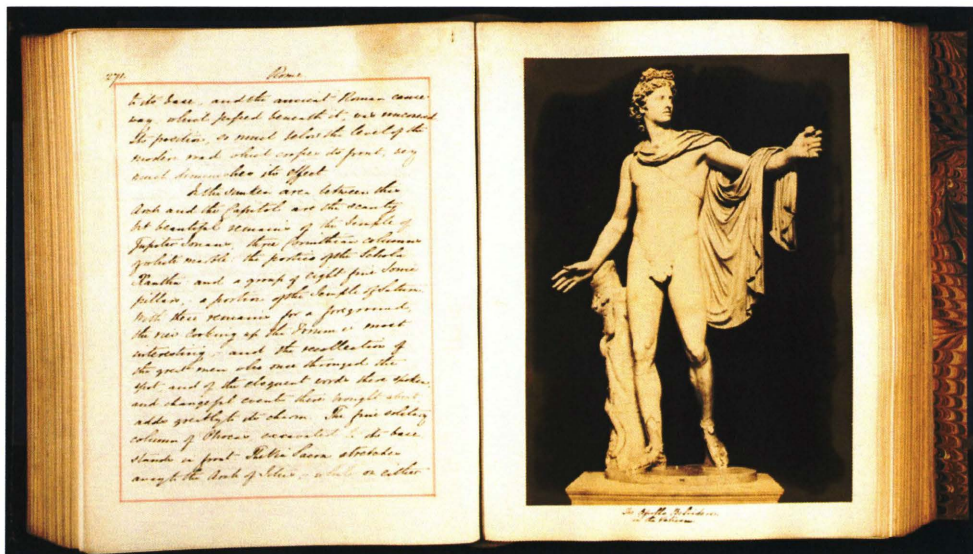 274
Rome
to its base, and the ancient Roman cause-
way which passed beneath it, was uncovered
Its position, so much below the level of the
modern road which crosses its front, very
much diminishes its effect
In the sunken area between this
Arch and the Capitol are the scanty
but beautiful remains of the Temple of
Jupiter Tonans, three Corinthian columns
of white marble the portico of the Schola
Xantha and a group of eight fine Ionic
pillars, a portion of the Temple of Saturn
With these remains for a foreground,
the view looking up the Forum is most
interesting, and the recollection of
the great men who once thronged the
spot and of the eloquent words there spoken,
and changeful events there brought about
adds greatly to its charm. The fine solitary
column of Phocas excavated to its base
stands in front the Via Sacra stretches
away to the Arch of Titus, while on either
The Apollo Belvedere
in the Vatican